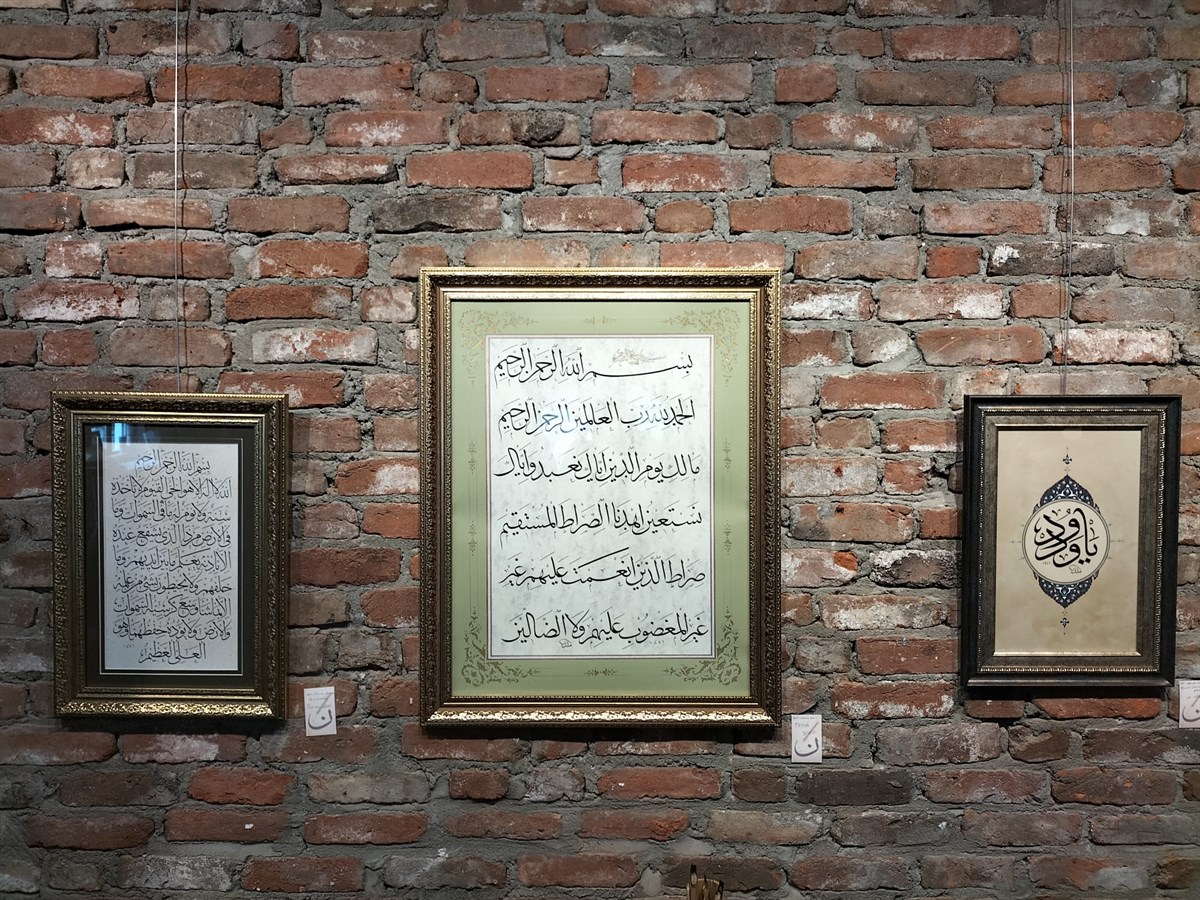 بسم الله الرحمن الرحيم
الله لا اله الا هو الحي القيوم لا تاخذه
سنة ولا نوم له ما في السموات وما
في الارض من ذا الذي يشفع عنده
الا باذنه يعلم ما بين ايديهم وما
خلفهم ولا يحيطون بشيء من علمه
الا بما شاء وسع كرسيه السموات
والارض ولا يؤده حفظهما وهو
العلي العظيم
بسم الله الرحمن الرحيم
الحمد لله رب العالمين الرحمن الرحيم
مالك يوم الدين اياك نعبد واياك
نستعين اهدنا الصراط المستقيم
صراط الذين انعمت عليهم غير
غير المغضوب عليهم ولا الضالين
يا ودود
ن
ن